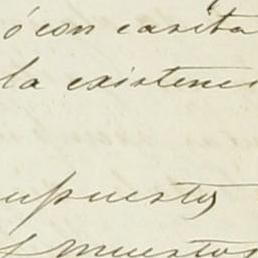 ó con carita
la existenci
upuesto
muestos